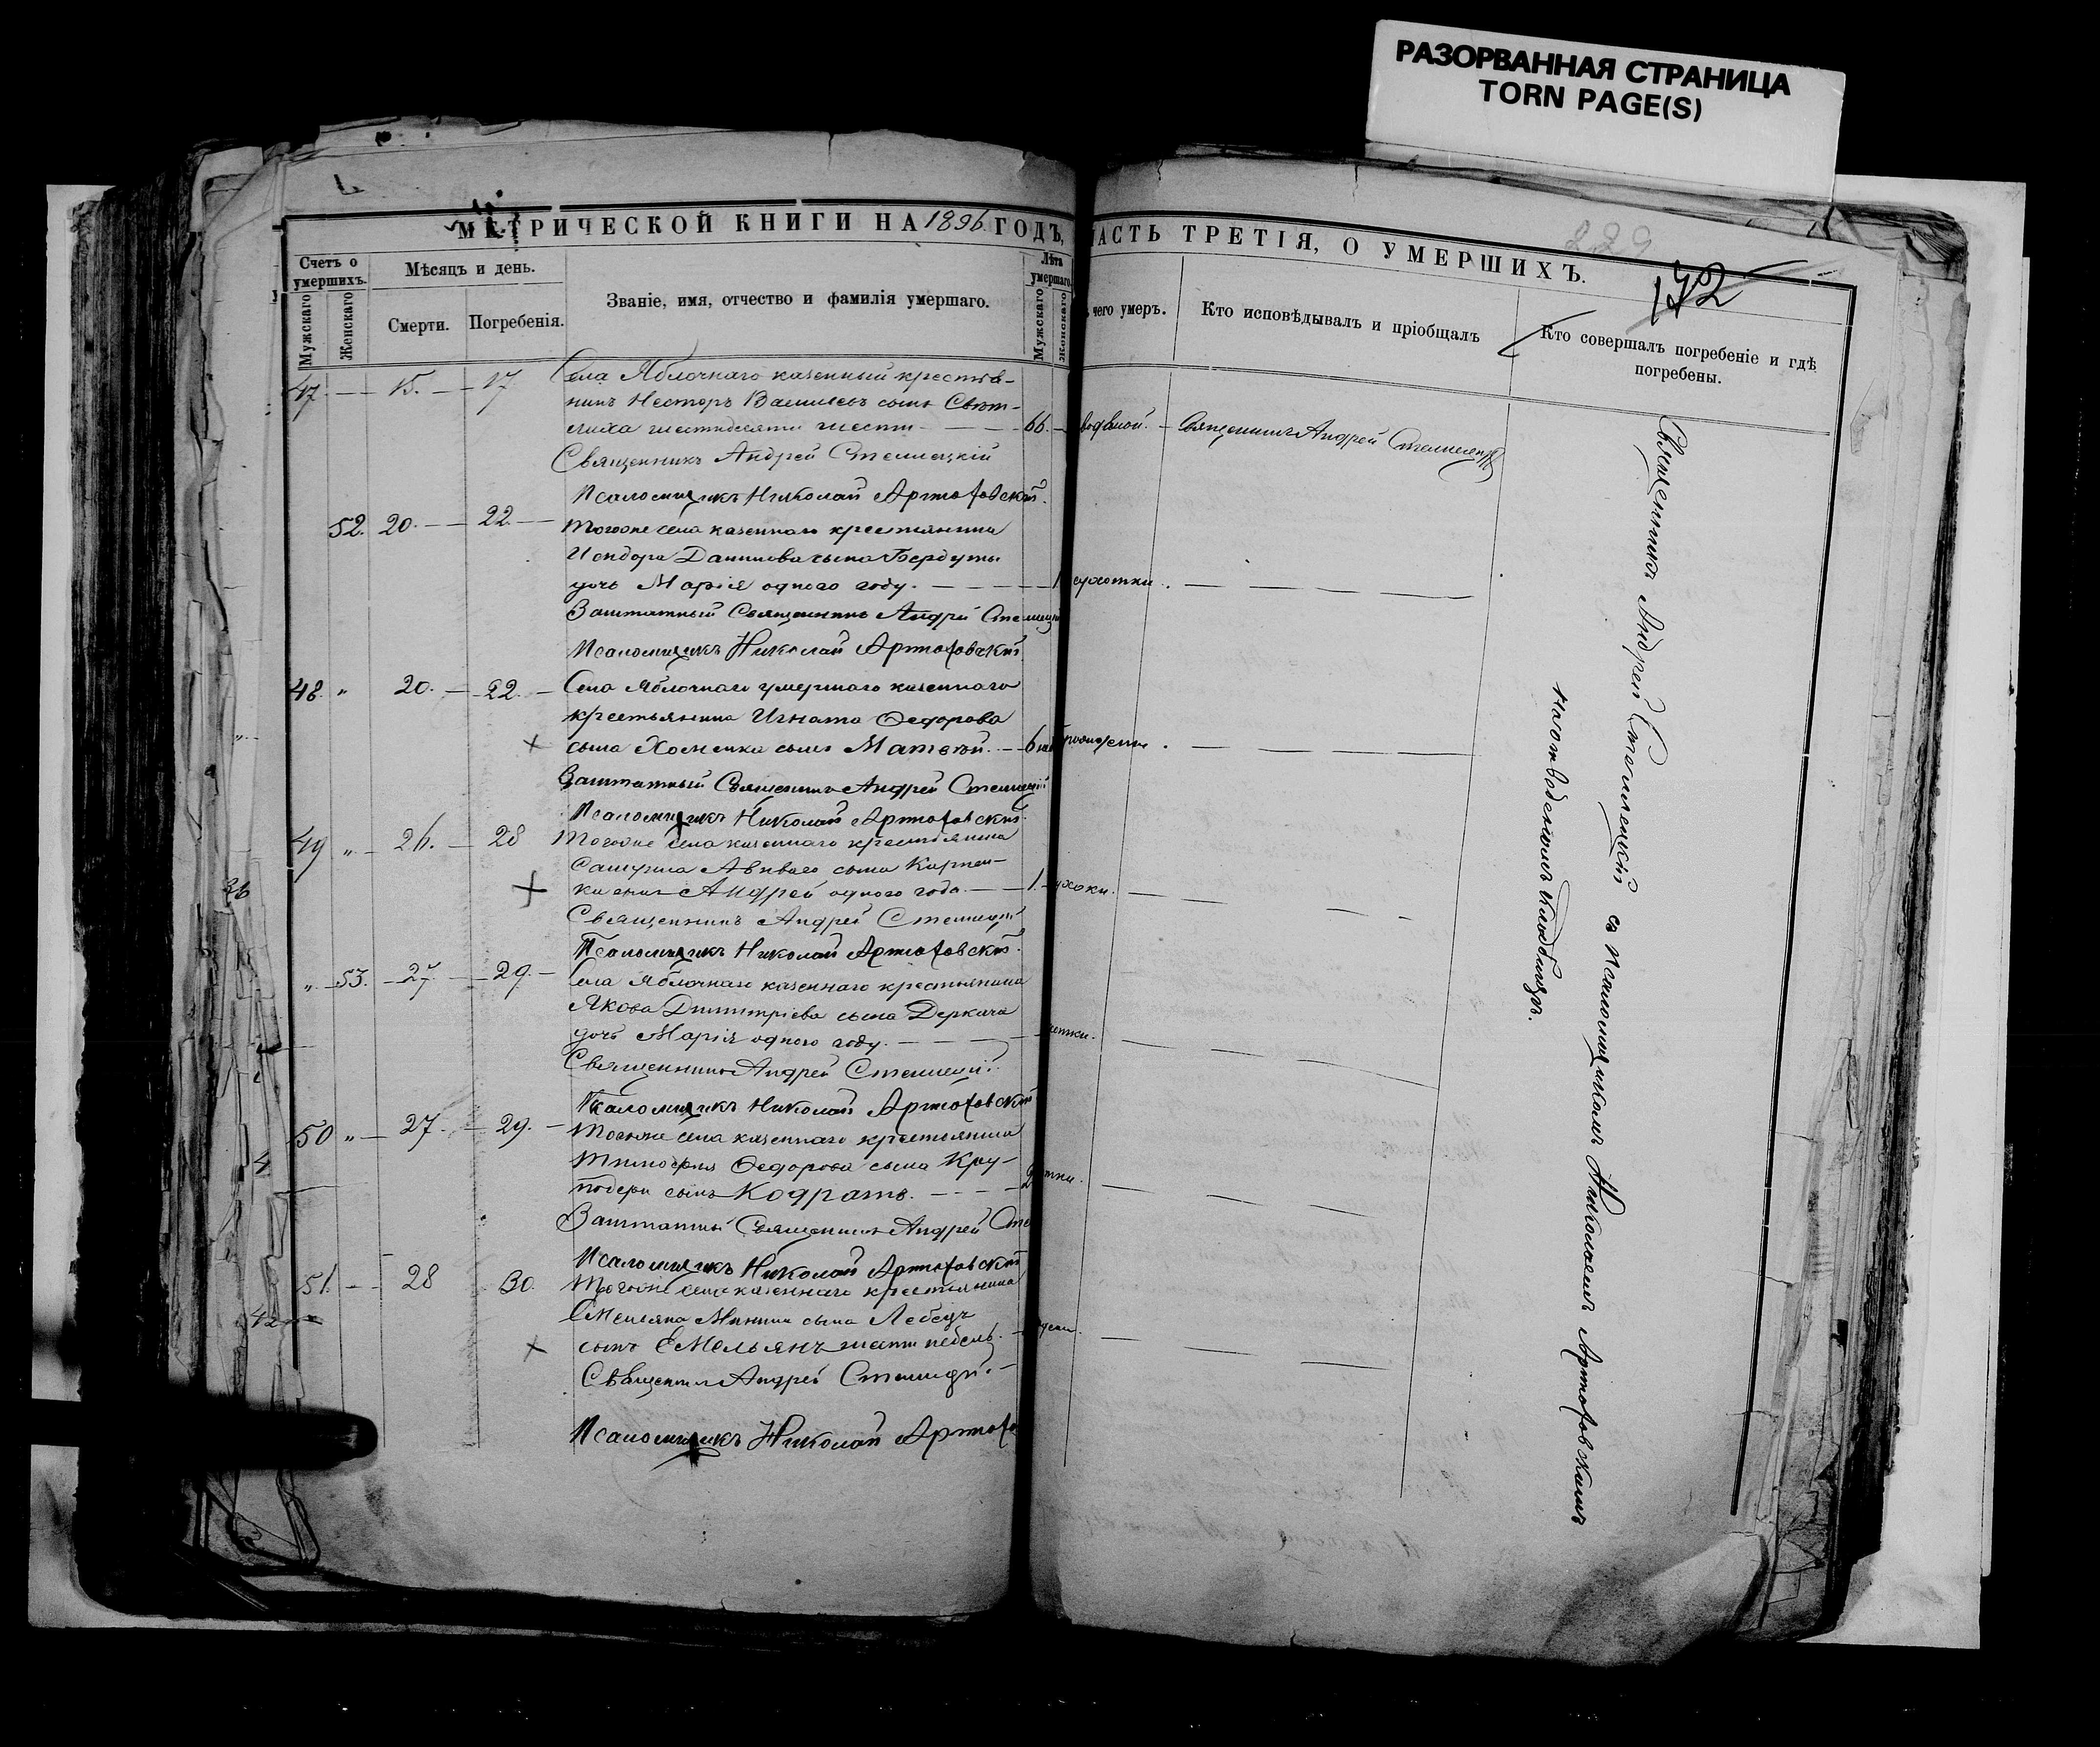 РАЗОРВАННАЯ СТРАНИЦА
TORN PAGE(S)
МЕТРИЧЕСКОЙ КНИГИ НА 1896 ГОДЪ, ЧАСТЬ ТРЕТІЯ, О УМЕРШИХЪ.
229
172
Счетъ о умершихъ.
Мужскаго
Женскаго
Мѣсяцъ и день.
Смерти.
Погребенія.
Званіе, имя, отчество и фамилія умершаго.
Лѣта умершаго.
Мужскаго
Женскаго
чего умеръ.
Кто исповѣдывалъ и пріобщалъ
Кто совершалъ погребеніе и гдѣ погребены.
47. — 15. — 17 Села Яблочнаго казенный крестья-
нинъ Несторъ Васильевъ сынъ Свѣт-
шестидесяти шести — 66. — водяной. — Священникъ Андрей Стеллецкій
Священникъ Андрей Стеллецкій
Псаломщикъ Николай Артюховскій.
52. 20. — 22. — Тогоже села казеннаго крестьянина
Исидора Данилова сына Бердуты
дочь Марія одного году. — 1 сухотки.
Заштатный Священникъ Андрей Стеллецкій
Псаломщикъ Николай Артюховскій
48. " 20. — 22. — Села Яблочнаго умершаго казеннаго
крестьянина Игната Ѳедорова
сына Хоменка сынъ Матвѣй. — 6
Заштатный Священникъ Андрей Стеллецкій
Псаломщикъ Николай Артюховскій.
49 " — 26. — 28 Тогоже села казеннаго крестьянина
сына Карпен-
ка сынъ Андрей одного года. — 1.
Священникъ Андрей Стеллецкій
Псаломщикъ Николай Артюховскій.
" 53. — 27 — 29. — Села Яблочнаго казеннаго крестьянина
Якова Димитріева сына Деркача
дочь Марія одного году. —
Священникъ Андрей Стеллецкій.
Псаломщикъ Николай Артюховскій
50 " — 27. — 29. — Тогоже села казеннаго крестьянина
Тимофея Ѳедорова сына Кру-
подери сынъ Кодратъ. — 2
Заштатный Священникъ Андрей Сте
Псаломщикъ Николай Артюховскій
51. — 28 30. Тогоже села казеннаго крестьянина
Емельяна Минина сына Лебедя
сынъ Емельянъ недель. —
Священникъ Андрей Стеллецкій. —
Псаломщикъ Николай Артюхо
Священникъ Андрей Стеллецкій съ псаломщикомъ Николаемъ Артюховскимъ
на отведенномъ кладбищѣ.